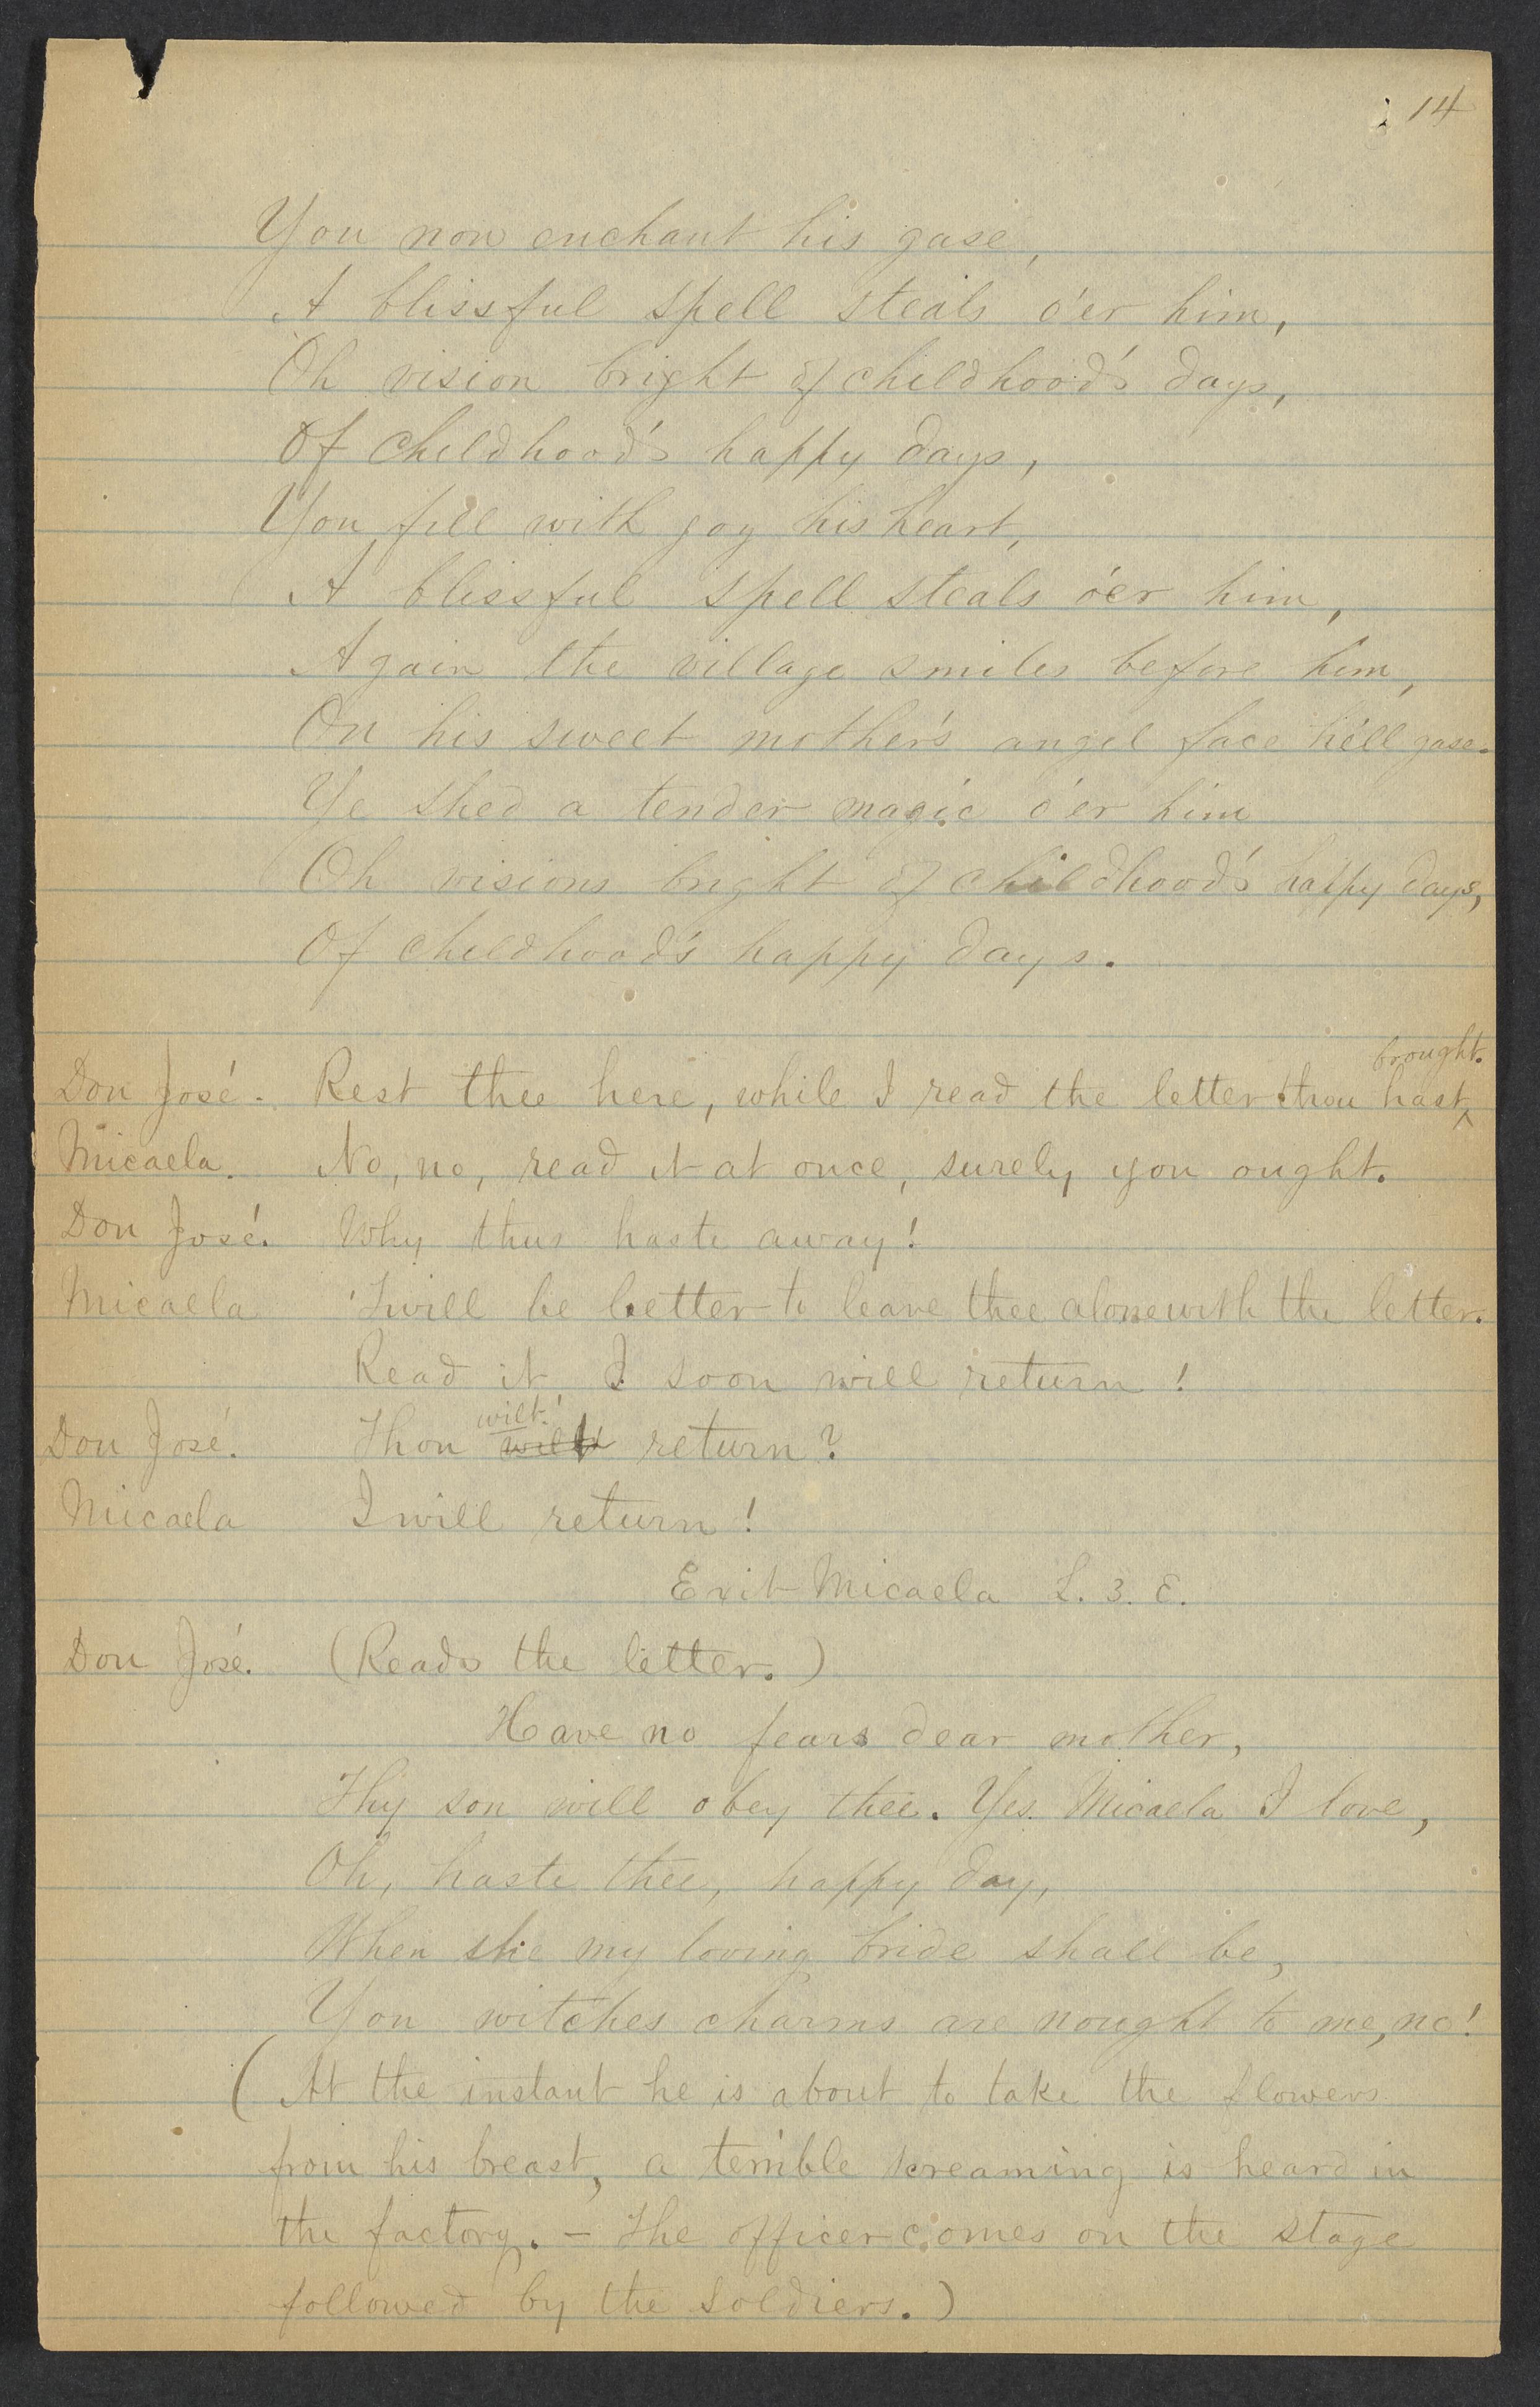 14
You now enchant his gaze,
A blissful spell steals o'er him,
Oh vision bright of childhood's days,
Of childhood's happy days,
You fill with joy his heart,
A blissful spell steals o'er him,
Again the village smiles before him,
On his sweet mother's angel face he'll gaze.
Ye shed a tender magic o'er him
Oh visions bright of childhood's happy days,
Of childhood's happy days.
brought.
Don José. Rest thee here, while I read the letter thou hast ^
Micaela. No, no, read it at once, surely you ought.
Don José. Why thus haste away!
Micaela 'Twill be better to leave thee alone with the letter.
Read it, I soon will return!
wilt
Don José. Thou will return?
Micaela I will return!
Exit Micaela L. 3. E.
Don José. (Reads the letter.)
Have no fears dear mother,
Thy son will obey thee. Yes. Micaela I love,
Oh, haste thee, happy day,
When she my loving bride shall be,
You witches charms are nought to me, no!
(At the instant he is about to take the flowers
from his breast, a terrible screaming is heard in
the factory. - The officer comes on the stage
followed by the soldiers.)